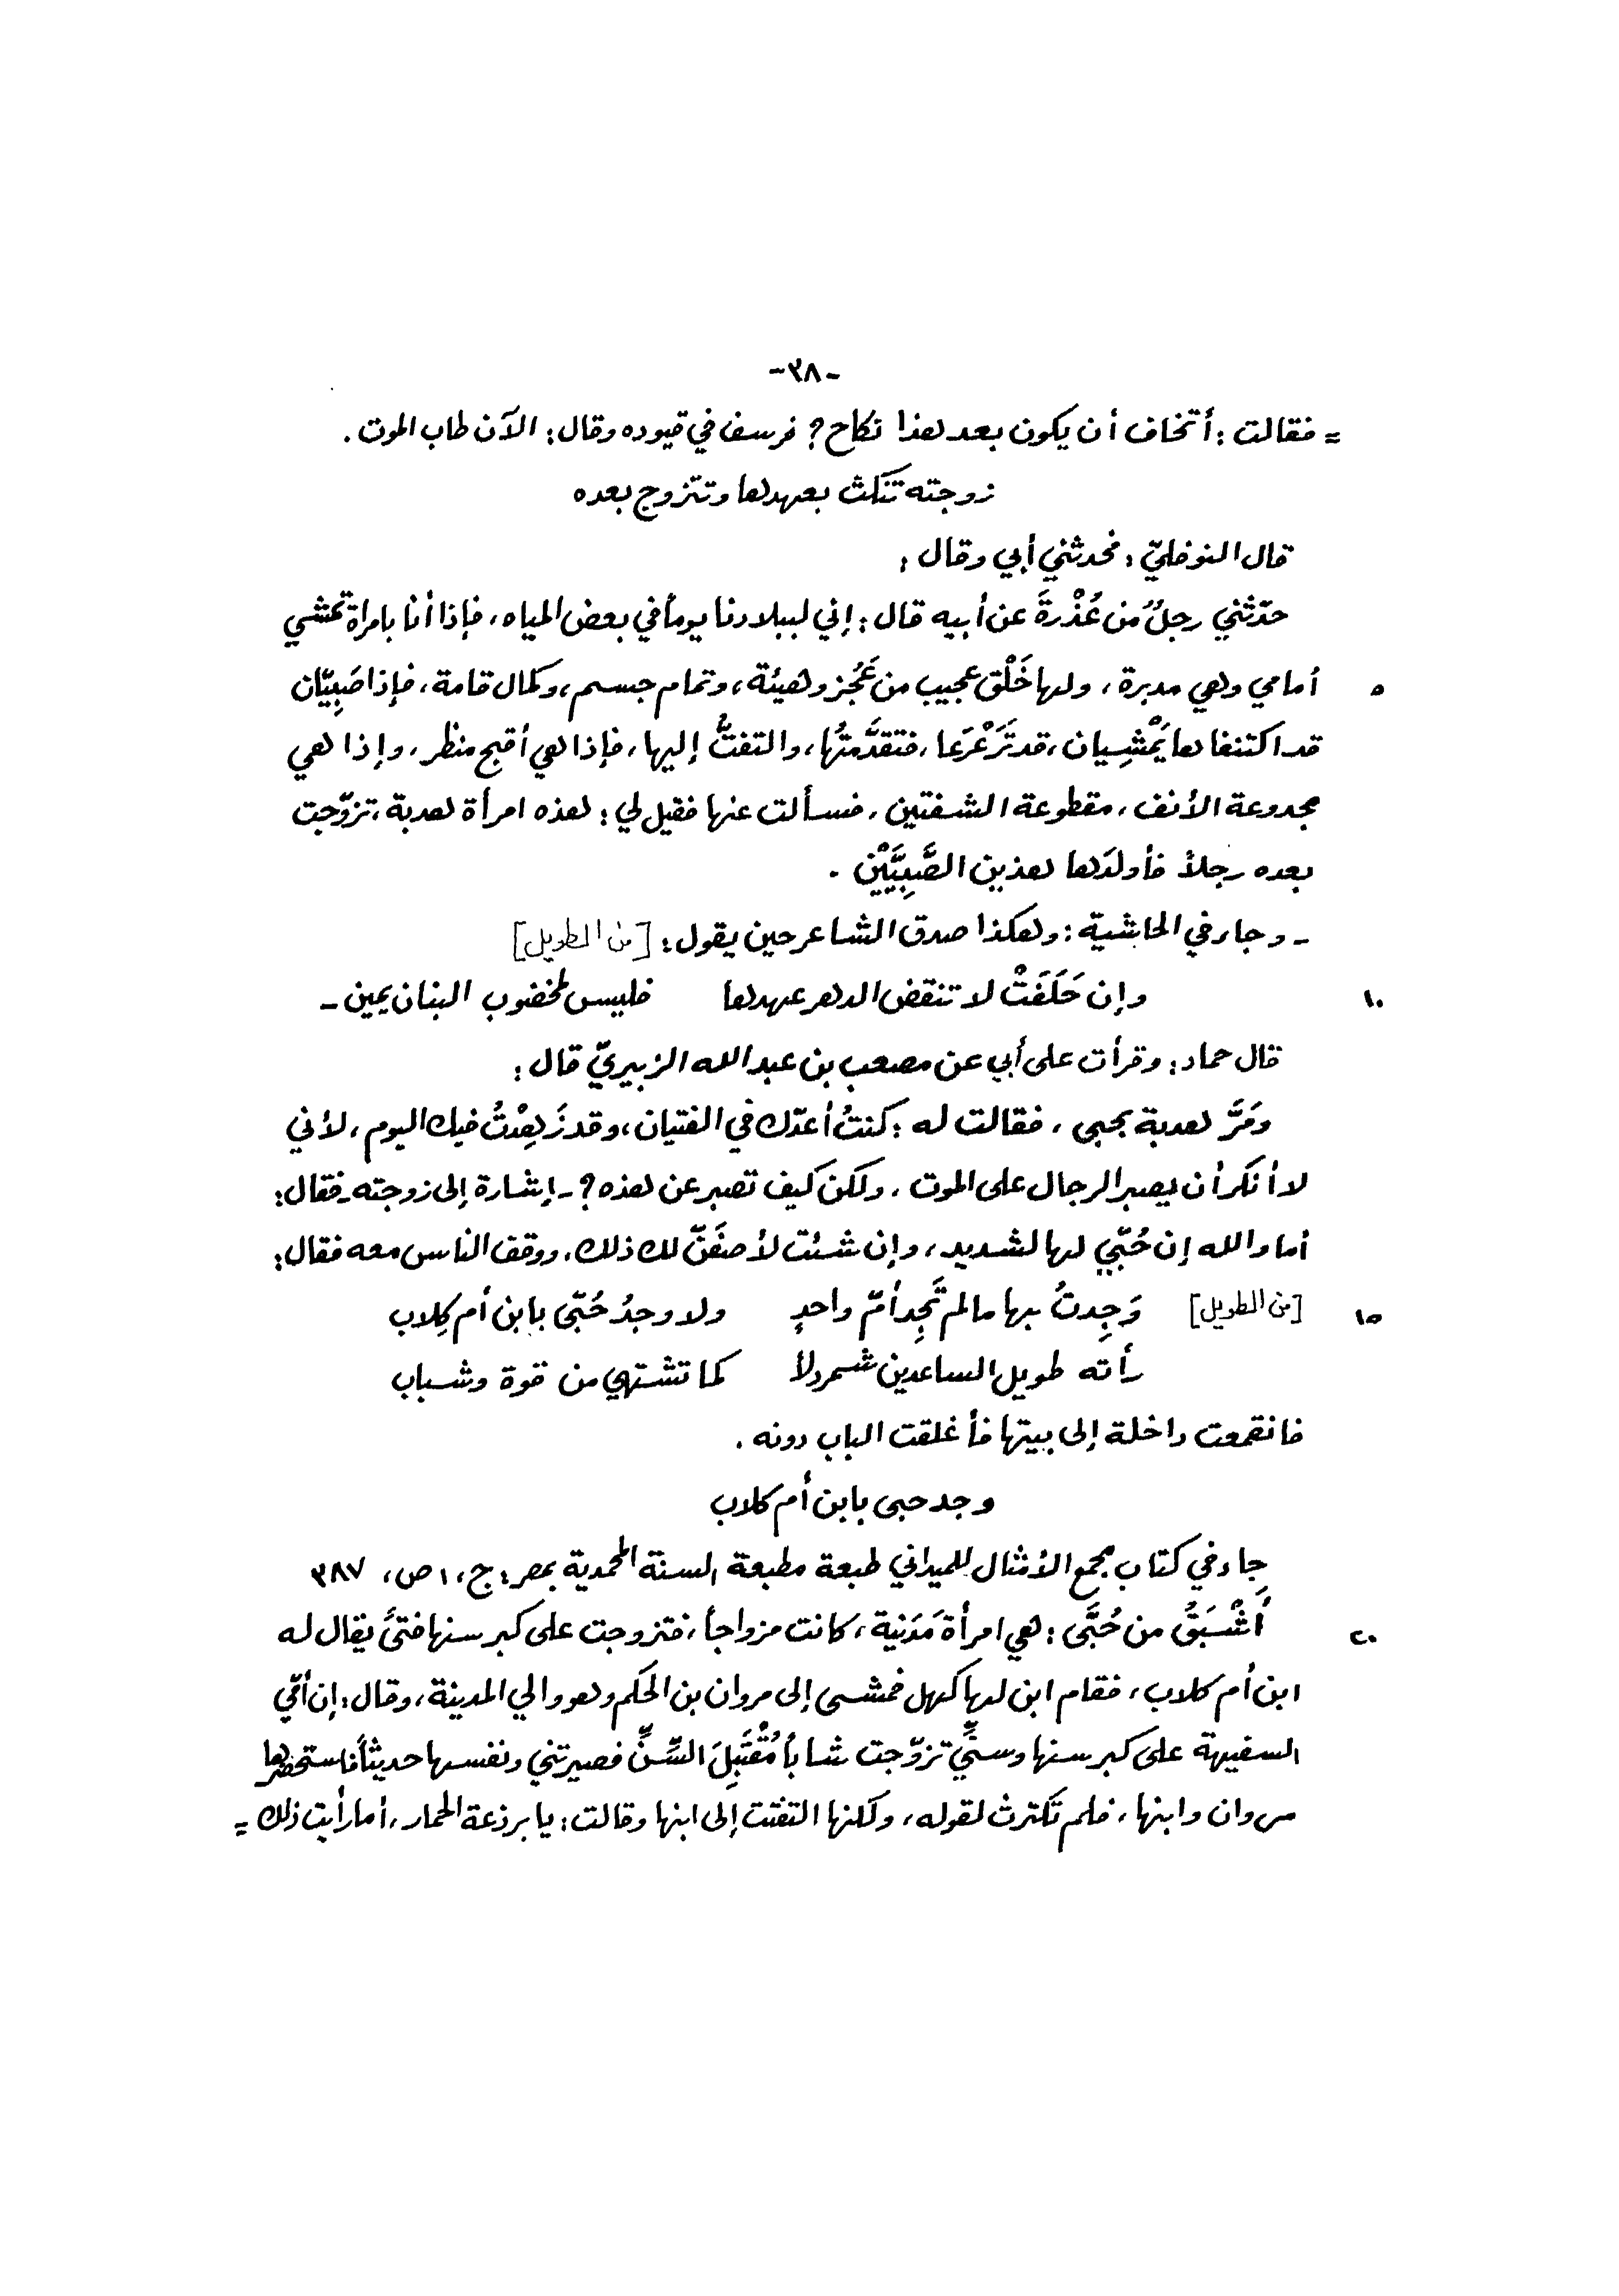 -٣٨-
= فقالت : أتخاف أن يكون بعد هذا نكاح؟ فرسف في قيوده وقال: الآن طاب الموت .
زوجته تنكث بعهدها وتتزوج بعده
قال النوفليّ: فحدثني أبي وقال :
حدّثني رجلٌ من عُذْرةَ عن أبيه قال: إني لببلادنا يوماً في بعض المياه، فإذا أنا بامرأة تمشي
٥ أمامي وهي مدبرة، ولها خَلْق عجيب من عَجُز وهيئة، وتمام جسم، وكمال قامة، فإذا صَبِيّان
قد اكتنفاها يَمْشِيان، قد تَرَعْرَعا، فتقدَّمتُها، والتفتُّ إليها، فإذا هي أقبح منظر، وإذا هي
مجدوعة الأنف، مقطوعة الشفتين، فسألت عنها فقيل لي: هذه امرأة هدبة، تزوّجت
بعده رجلاً فأولدَها هذين الصَّبِيَّيْن .
ـ وجاء في الحاشية: وهكذا صدق الشاعر حين يقول: [من الطويل]
١٠ وإن حَلَفَتْ لا تنقض الدهر عهدها فليس لمخضوب البنان يمين ـ
قال حماد: وقرأت على أبي عن مصعب بن عبد الله الزبيريّ قال :
ومَرَّ هدبة بحبى، فقالت له : كنتُ أعدّك في الفتيان، وقد زَهِدْتُ فيك اليوم، لأني
لا أنكر أن يصبر الرجال على الموت، ولكن كيف تصبر عن هذه؟ ـ إشارة إلى زوجته ـ فقال:
أما والله إن حُبّي لها لشديد، وإن شئت لأصفَنّ لك ذلك، ووقف الناس معه فقال:
١٥ [من الطويل] وَجِدتُ بها مالم تَجِد أمّ واحدٍ ولا وجدُ حُبّى بابن أم كِلاب
رأته طويل الساعدين شمردلاً كما تشتهي من قوة وشباب
فانقمعت داخلة إلى بيتها فأغلقت الباب دونه .
وجد حبى بابن أم كلاب
جاء في كتاب مجمع الأمثال للميداني طبعة مطبعة السنة المحمدية بمصر: ج، ١ ص، ٣٨٧
٢٠ أَشْبَقُ من حُبَّى : هي امرأة مَدَنية، كانت مزواجاً، فتزوجت على كبر سنها فتىً يقال له
ابن أم كلاب، فقام ابن لها كهل فمشى إلى مروان بن الحكم وهو والي المدينة، وقال: إن أمّي
السفيهة على كبر سنها وسنِّي تزوّجت شاباً مُقْتَبِلَ السِّنِّ فصيرتني ونفسها حديثاً فاستحضرها
مروان وابنها، فلم تكترث لقوله، ولكنها التفتت إلى ابنها وقالت: يا برذعة الحمار، أما رأيت ذلك =